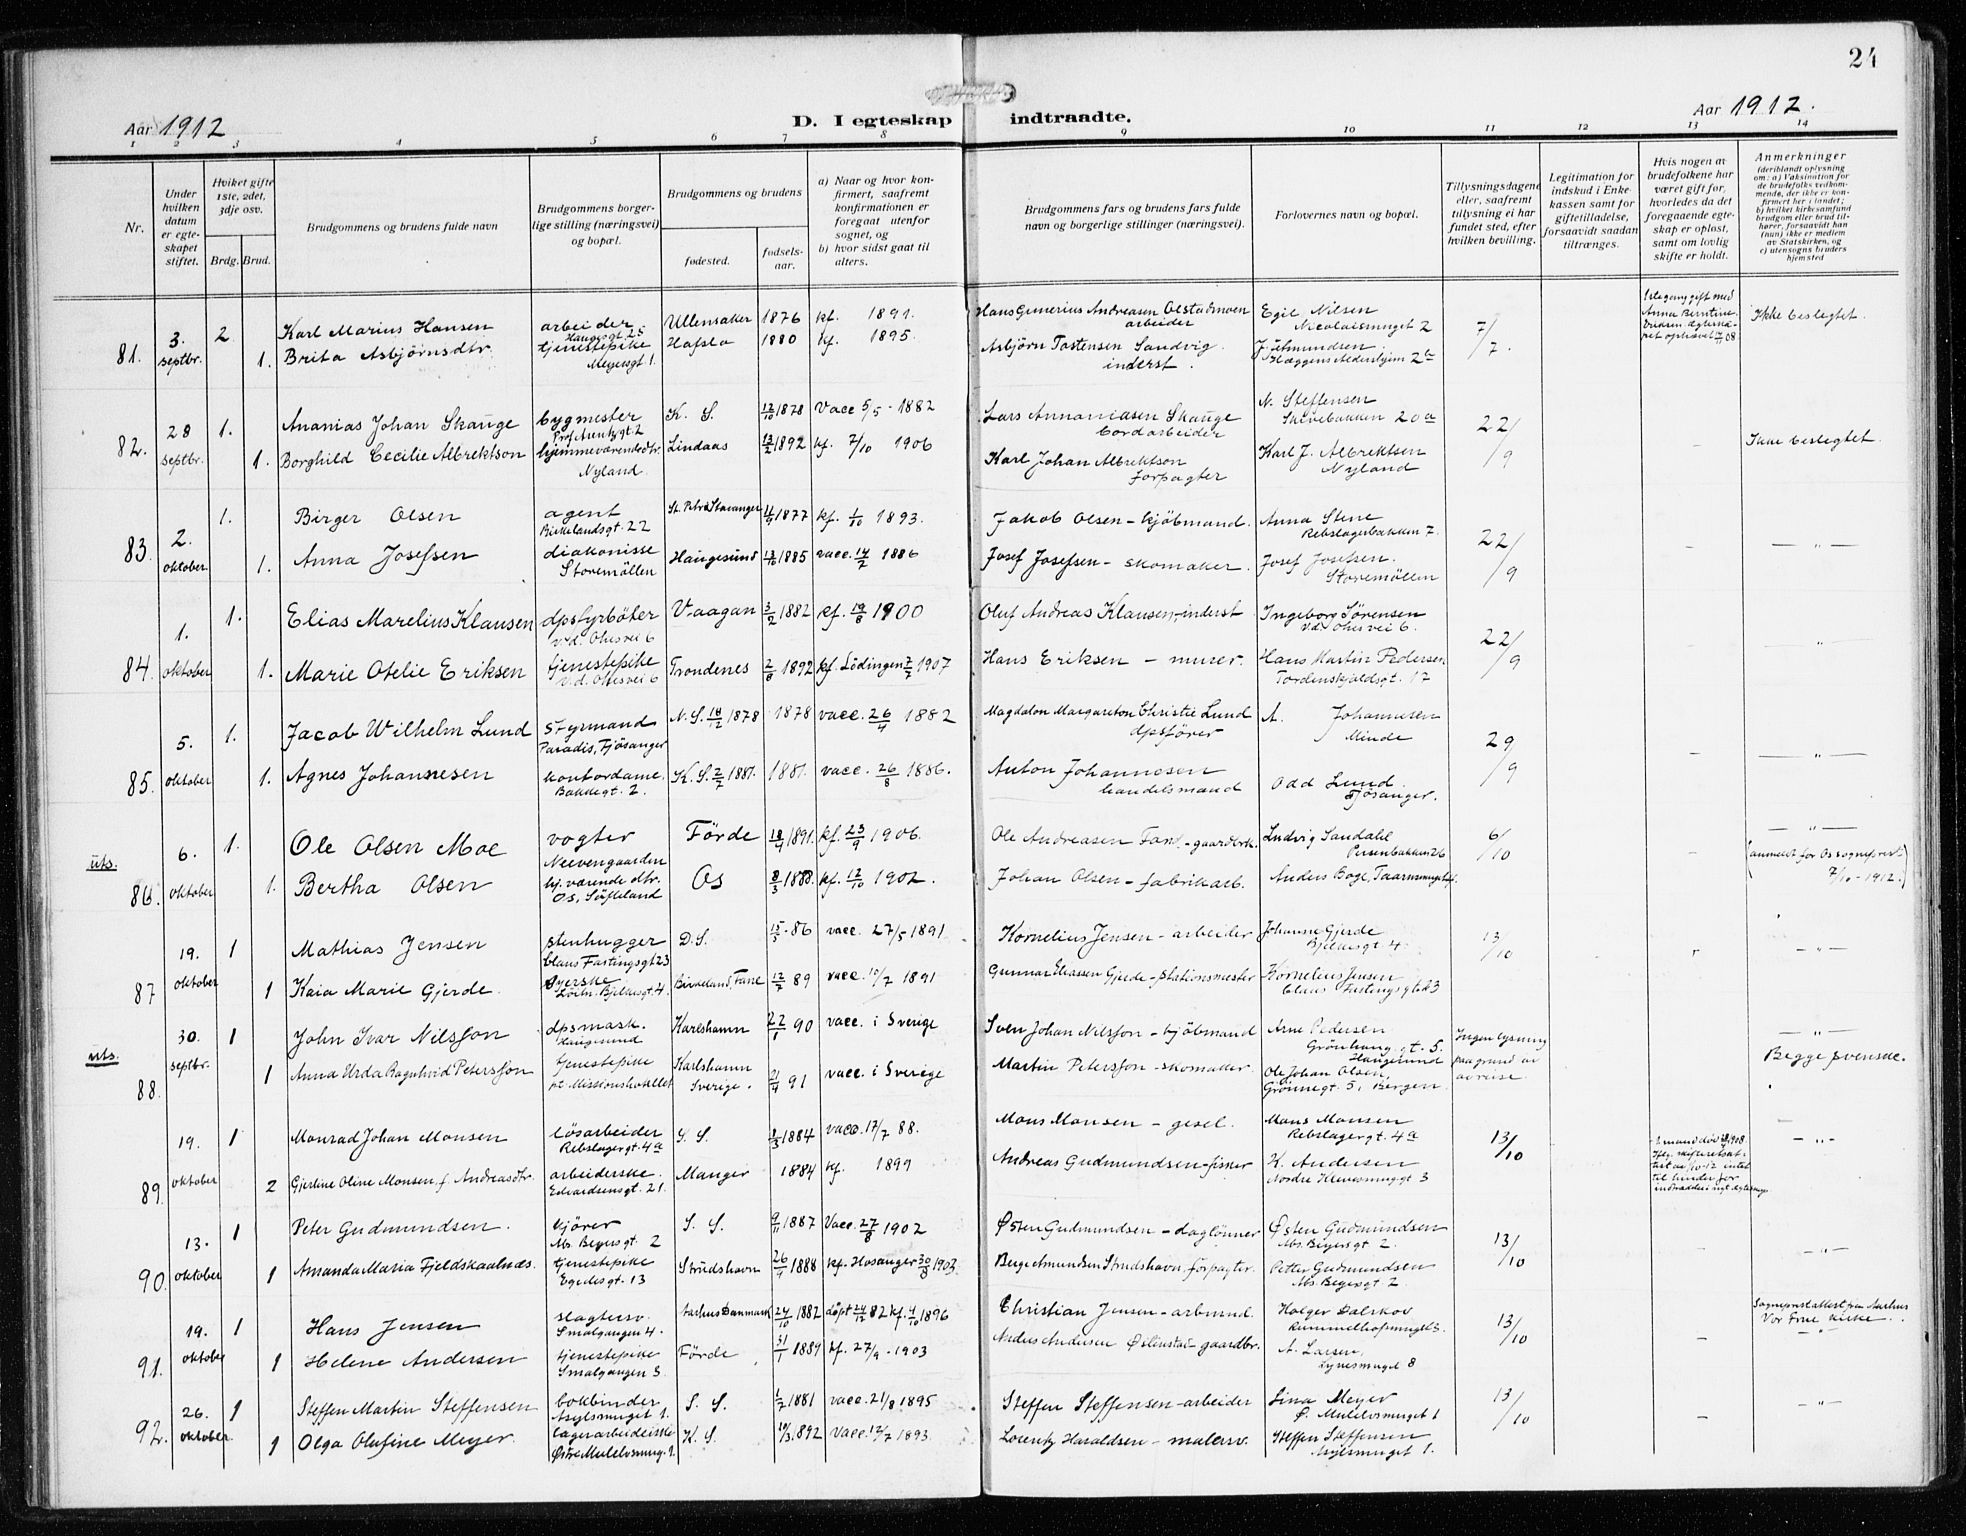 24
Aar 1912
D. I egteskap indtraadte.
Aar 1912.
1 2 3 4 5 6 7 8 9 10 11 12 13 14
Nr.
Under hvilken datum er egteskapet stiftet.
Hviket gifte 1ste, 2det, 3dje osv.
Brdg. Brud.
Brudgommens og brudens fulde navn
Brudgommens borgerlige stilling (næringsvei) og bopæl.
Brudgommens og brudens
fødested.
fødselsaar.
a) Naar og hvor konfirmert, saafremt konfirmationen er foregaat utenfor sognet, og
b) hvor sidst gaat til alters.
Brudgommens fars og brudens fars fulde navn og borgerlige stillinger (næringsvei).
Forlovernes navn og bopæl.
Tillysningsdagene eller, saafremt tillysning ei har fundet sted, efter hvilken bevilling.
Legitimation for indskud i Enkekassen samt for giftetilladelse, forsaavidt saadan tiltrænges.
Hvis nogen av brudefolkene har været gift før, hvorledes da det foregaaende egteskap er opløst, samt om lovlig skifte er holdt.
Anmerkninger (deriblandt oplysning om: a) Vaksination for de brudefolks vedkommende, der ikke er konfirmert her i landet; b) hvilket kirkesamfund brudgom eller brud tilhører, forsaavidt han (hun) ikke er medlem av Statskirken, og c) utensogns bruders hjemsted
81. 3. septbr. 2 Karl Marius Hansen arbeider Haugesgt. 25 Ullensaker 1876 kf. 1891. Hans Gunerius Andreasen Olstadmoen arbeider Egil Nilsen Nicolaismuget 2 7/7. Ikke beslegtet.
1. Brita Asbjørnsdtr. tjenestepike Meyersgt. 1. Hafslo 1880 kf. 1895. Asbjörn Tostensen Sandvig inderst. J. Edmundsen
82. 28 septbr. 1. Ananias Johan Skauge bygmester K. S. 12/10 1878 Vacc 5/5 - 1882 Lars Annaniasen Skauge bordarbeider N. Steffensen Skivebakken 20a 22/9 Ikke beslegtet.
1. Borghild Cecilie Albrektson hjemmeværende dtr. Nyland. Lindaas 13/2 1892 kf. 7/10 1906 Karl Johan Albrektson forpagter Karl J. Albrektsen Nyland
83. 2. oktober 1. Birger Olsen agent Birkelandsgt. 22 St. Petri Stavanger 11/9 1877 kf. 1/10 1893. Jakob Olsen - kjöbmand. Anna Stene Rebslagerbakken 7. 22/9 - - " -
1. Anna Josefsen diakonisse Storemöllen Haugesund 13/10 1885 vacc. 14/7 1886 Josef Josefsen - skomaker. Josef Josefsen. Storemöllen
84. 1. oktober 1. Elias Marelius Klausen dpsfyrböter v. d. Ohesvei 6 Vaagan 3/2 1882 kf. 19/8 1900 Oluf Andreas Klausen - inderst Ingeborg Sørensen v.d. Ohesvei 6. 22/9 "
1. Marie Otelie Eriksen tjenestepike v. d. Ohesvei 6 Trondenes 2/8 1892 kf. Lödingen 7/7 1907 Hans Eriksen - murer. Hans Martin Pedersen Tordenskjoldsgt. 17
85. 5. oktober 1. Jacob Wilhelm Lund styrmand Paradis, Fjösanger N. S. 18/12 1878 1878 vacc. 26/4 1882 Magdalon Margareton Christie Lund dpsfører A. Johannesen Minde 29/9 - - " -
1. Agnes Johannesen kontordame. Bakkegt. 2. K. S. 2/7 1881. 1881. vacc. 26/8 1886. Anton Johannesen handelsmand Odd Lund Fjösanger.
uts. 86. 6. oktober 1. Ole Olsen Moe vogter Neevengaarden Förde 18/4 1891. kf. 23/9 1906. Ole Andreasen Ludvig Sandahl Persenbakken 26 6/10 - - " -
1. Bertha Olsen hj. værende dtr. Os, Söfteland Os 8/3 1888. kf. 12/10 1902. Johan Olsen - fabrikarb. Anders Boge, (anmeldt for Os sogneprest 7/10 - 1912.)
87 19. oktober 1 Mathias Jensen stenhugger Claus Fastingsgt 23 D. S. 15/5 - 86 vacc. 27/5 1891. Kornelius Jensen - arbeider Johanne Gjerde Bjelkesgt 4. 13/10 - " -
1 Kaia Marie Gjerde. syerske Birkeland, Fane 12/7 89 vacc. 10/7 1891 Gunnar Eliassen Gjerde - stationsmester Kornelius Jensen Claus Fastingsgt 23
uts. 88. 30. septbr. 1 John Ivar Nilsson dpsmask. Haugesund Karlshamn 22/1 90 vacc. i Sverige Sven Johan Nilsson - kjöbmand Arne Pedersen Haugesund Ingen lysning paa grund av avreise. - " -
1 Anna Urda Ragnhild Petersson tjenestepike pt. Missionshotellet Karlshamn Sverige. 21/4 91 vacc. i Sverige Martin Petersson - skomaker. Ole Johan Olsen, Grönnegt. 5, Bergen. Begge svenske.
89. 19. oktober 1 Monrad Johan Monsen lösarbeider Rebslagergt. 4a S. S. 3/3 1884 vacc. 17/7 88. Mons Monsen - gesel. Mons Monsen Rebslagergt. 4a 13/10 - " -
2 Gjertine Oline Monsen f. Andreasdtr. arbeiderske. Edvardsensgt. 21. Manger 1884 kf. 1899 Andreas Gudmundsen - fisker K. Andersen Nordre 3
90. 13. oktober 1 Peter Gudmundsen. kjörer Abs. Beyersgt. 2 S. S. 9/11 1887 Vacc. 27/8 1902 Østen Gudmundsen - daglönner Østen Gudmundsen Abs. Beyersgt. 2. 13/10 - - " -
1 Amanda Maria Fjeldskaalnæs. tjenestepike Egedesgt. 13 Strudshavn 26/4 1888 kf. Hosanger 30/8 1903. Berge Amundsen Strudshavn, forpagter. Petter Gudmundsen Abs. Beyersgt. 2.
91. 19. oktober 1 Hans Jensen slagtersv. Smalgangen 4. Aarhus Danmark 24/10 1882 döpt 24/12 82 kf. 4/10 1896 Christian Jensen - arbmnd. Holger Dalskov 13/10 Sogneprestattest fra Aarhus Vor Frue kirke.
1 Helene Andersen tjenestepike Smalgangen 3 Förde 31/1 1889 kf. 27/9 - 1903 Anders Andersen - gaardbr. A. Larsen, Lynesmuget 8
92. 26. oktober. 1 Steffen Martin Steffensen bokbinder Asylsmuget 1. S. S. 1/7 1881 vacc. 21/8 1895 Steffen Steffensen - arbeider Lina Meyer Ø. Mulelvsmuget 1 13/10 - - " -
1 Olga Olufine Meyer. lagerarbeiderske Østre Mulelvsmug. 1. K. S. 10/3 1892 vacc. 12/7 1893. Lorentz Haraldsen - malersv. Steffen Steffensen Asylsmuget 1.